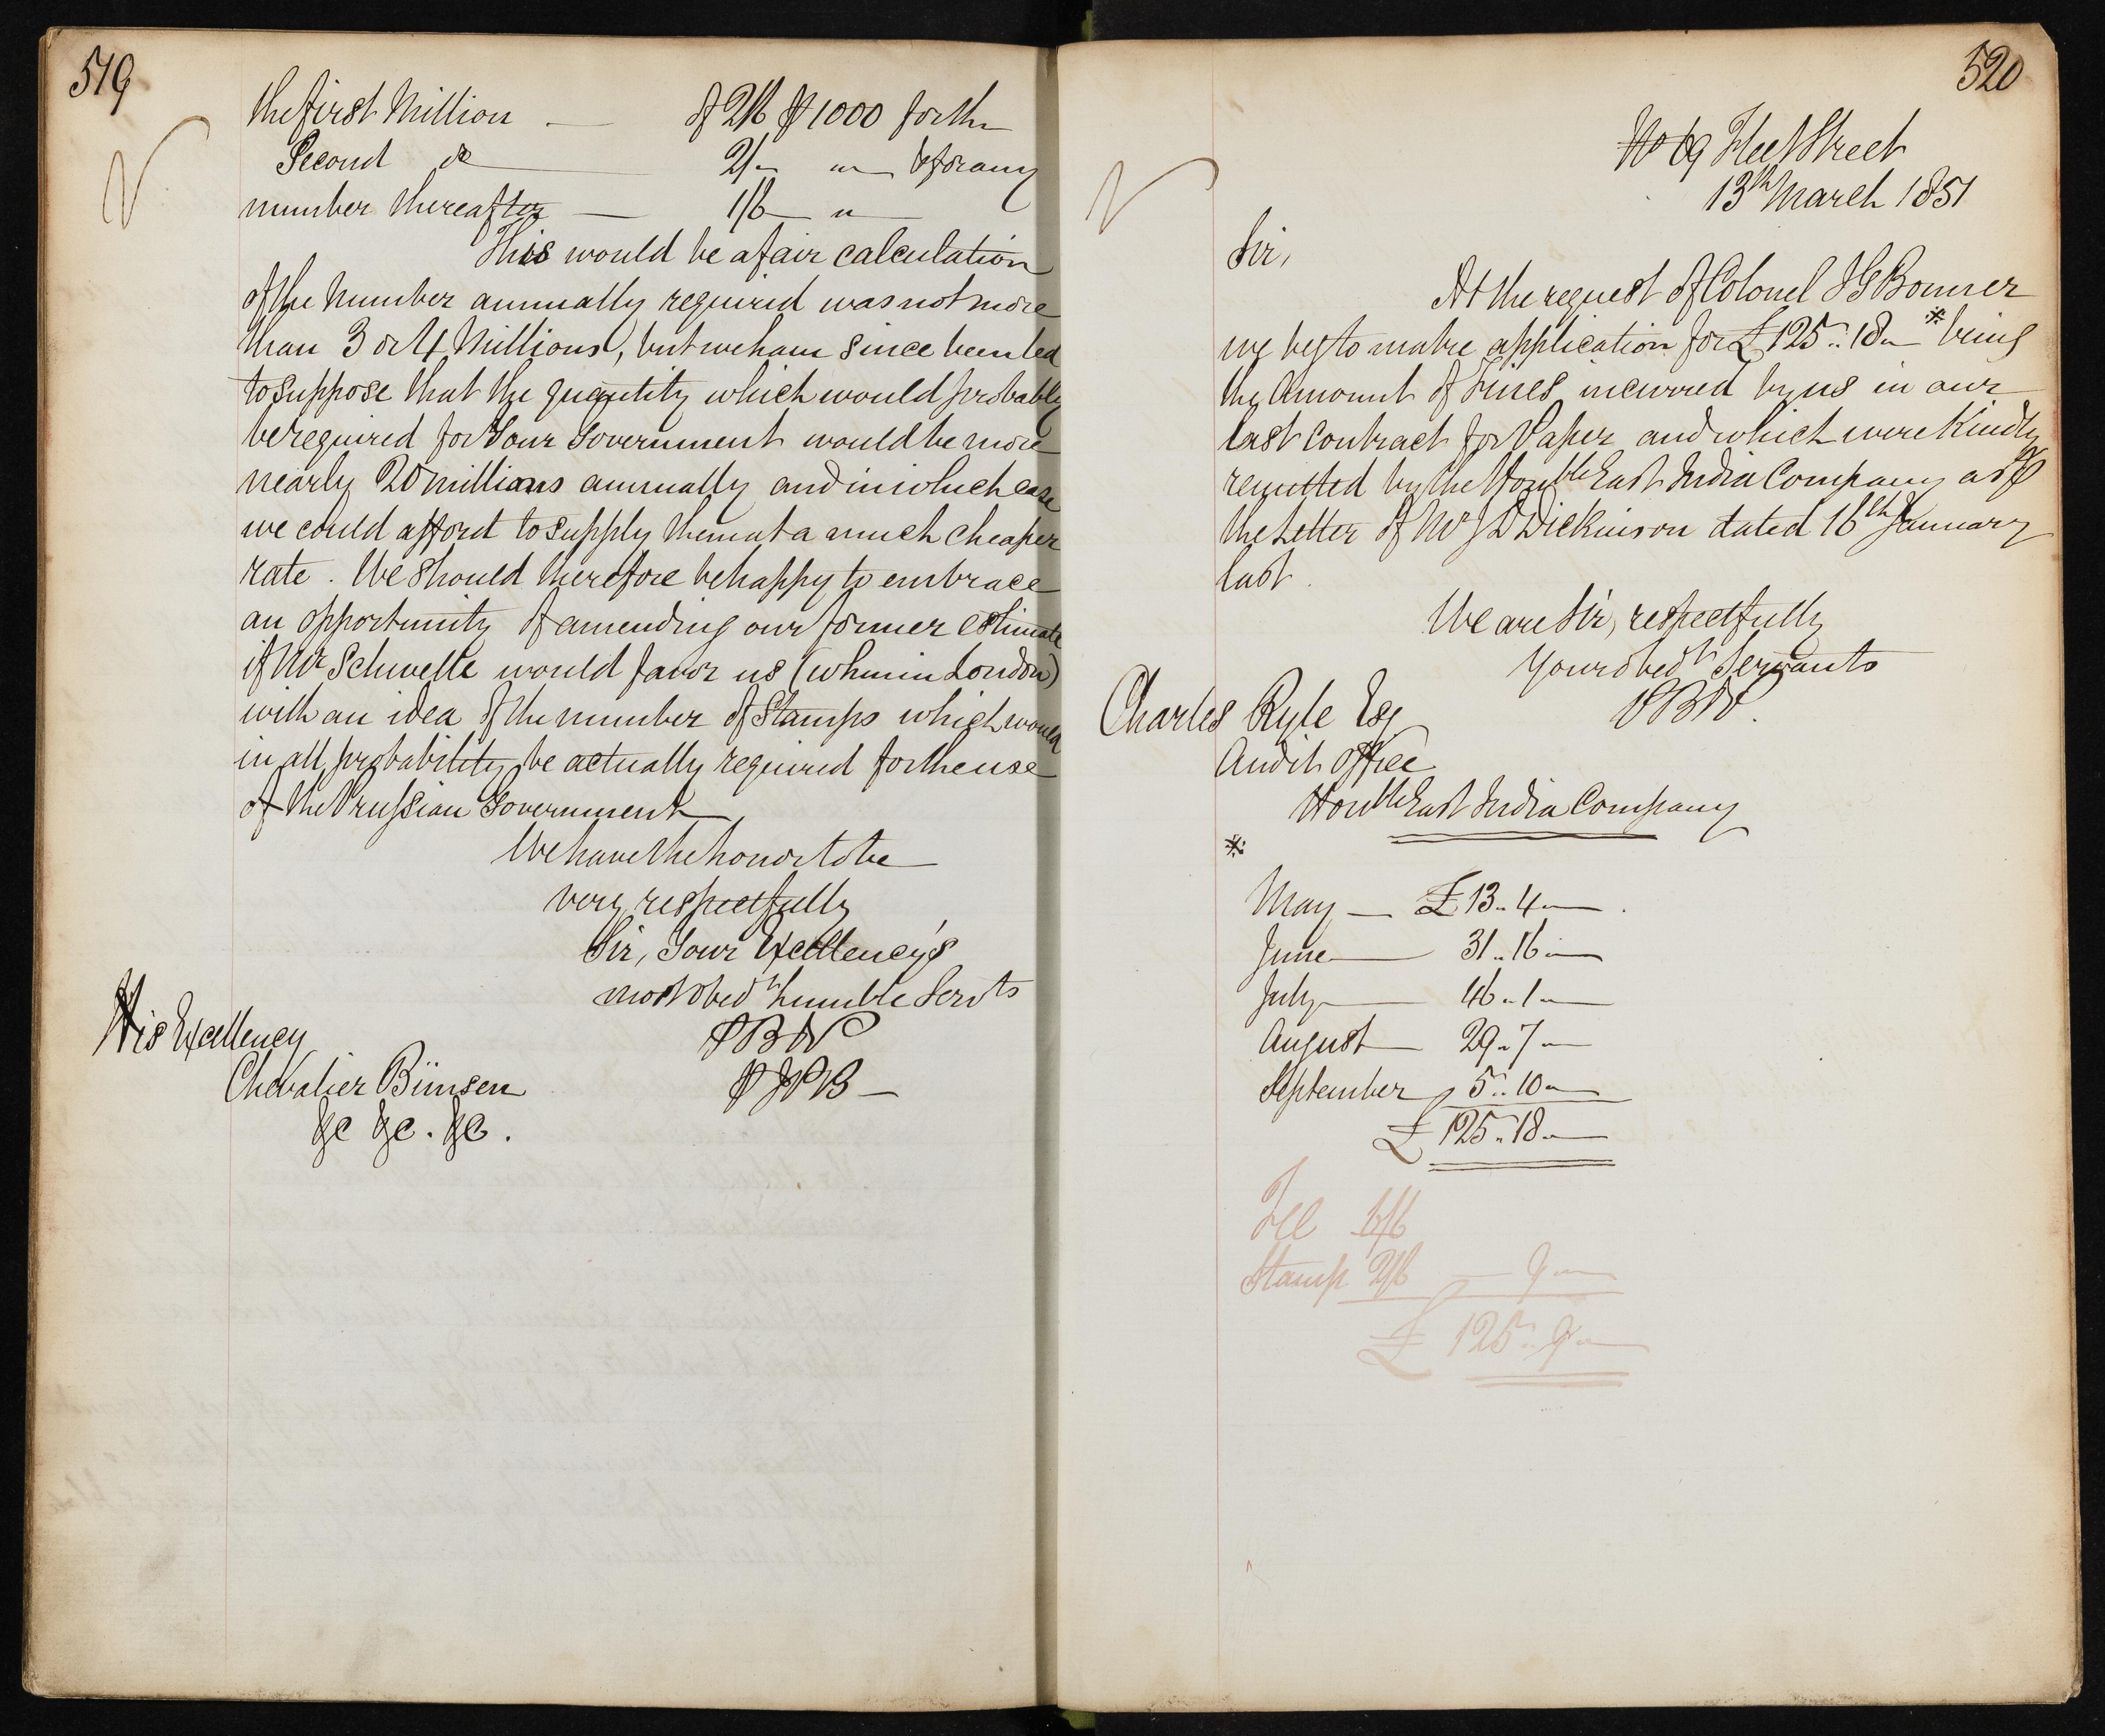 519
the first Million — of 2/6 ⅌ 1000 for the
Second do — 2/- " — & for any
number thereafter — 1/6 — "
This would be a fair calculation
of the Number annually required was not more
than 3 or 4 Millions, but we have since been led
to suppose that the quantity which would probably
be required for Your Government would be more
nearly 20 millions annually and in which case
we could afford to supply them at a much cheaper
rate. We should therefore be happy to embrace
an opportunity of amending our former estimate
if Mr would favor us (when in London)
with an idea of the number of Stamps which would
in all probability be actually required for the use
of the Prussian Government
We have the honor to be
very respectfully
Sir, Your Excellency's
most obedt humble Servts
PBW
⅌ JPB —
His Excellency
Chevalier Bünsen
&c &c. &c.
520
No 69 Fleet Street
13th March 1851
Sir,
At the request of Colonel J G Bonner
we beg to make application for £125..18.- * being
the Amount of Fines incurred by us in our
last contract for Paper and which were Kindly
remitted by the Honble East India Company as ⅌
the Letter of Mr J D Dickinson dated 16th January
last.
We are Sir, respectfully
Your obedt Servants
PBW.
Charles Ryle Esq
Audit Office
Honble East India Company
*
May — £13.. 4.. —
June — 31.. 16.. —
July — 46.. 1.. —
August — 29.. 7.. —
September 5.. 10.. —
£ 125.. 18.. —
Fee 6/6
Stamp 2/6 — 9.. —
£ 125.. 9.. —